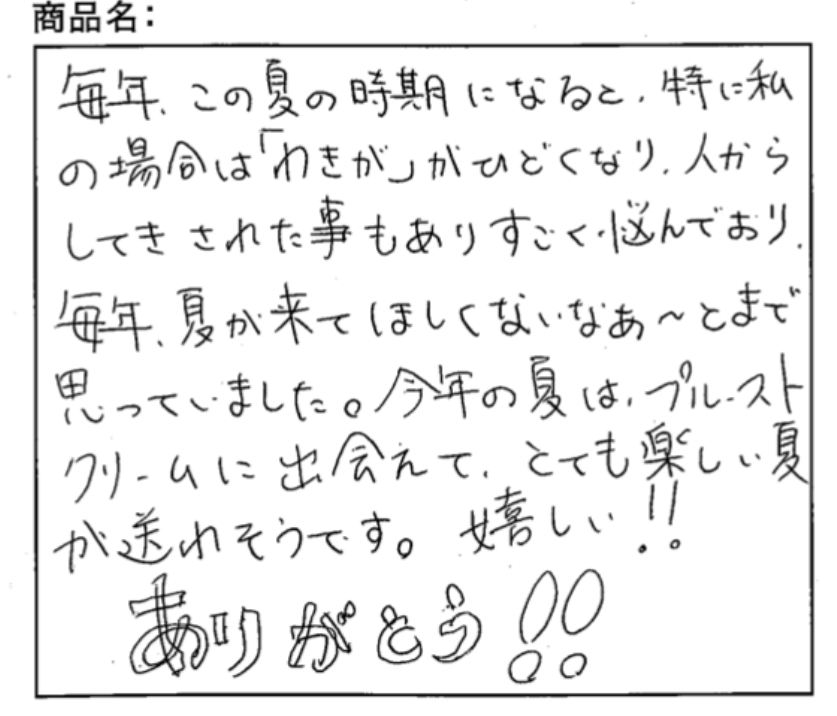 商品名:
毎年、この夏の時期になると、特に私
の場合は「わきが」がひどくなり、人から
してきされた事もありすごく悩んでおり、
毎年、夏が来てほしくないなぁ〜とまで
思っていました。今年の夏は、プルースト
クリームに出会えて、とても楽しい夏
が送れそうです。嬉しい!!
ありがとう!!